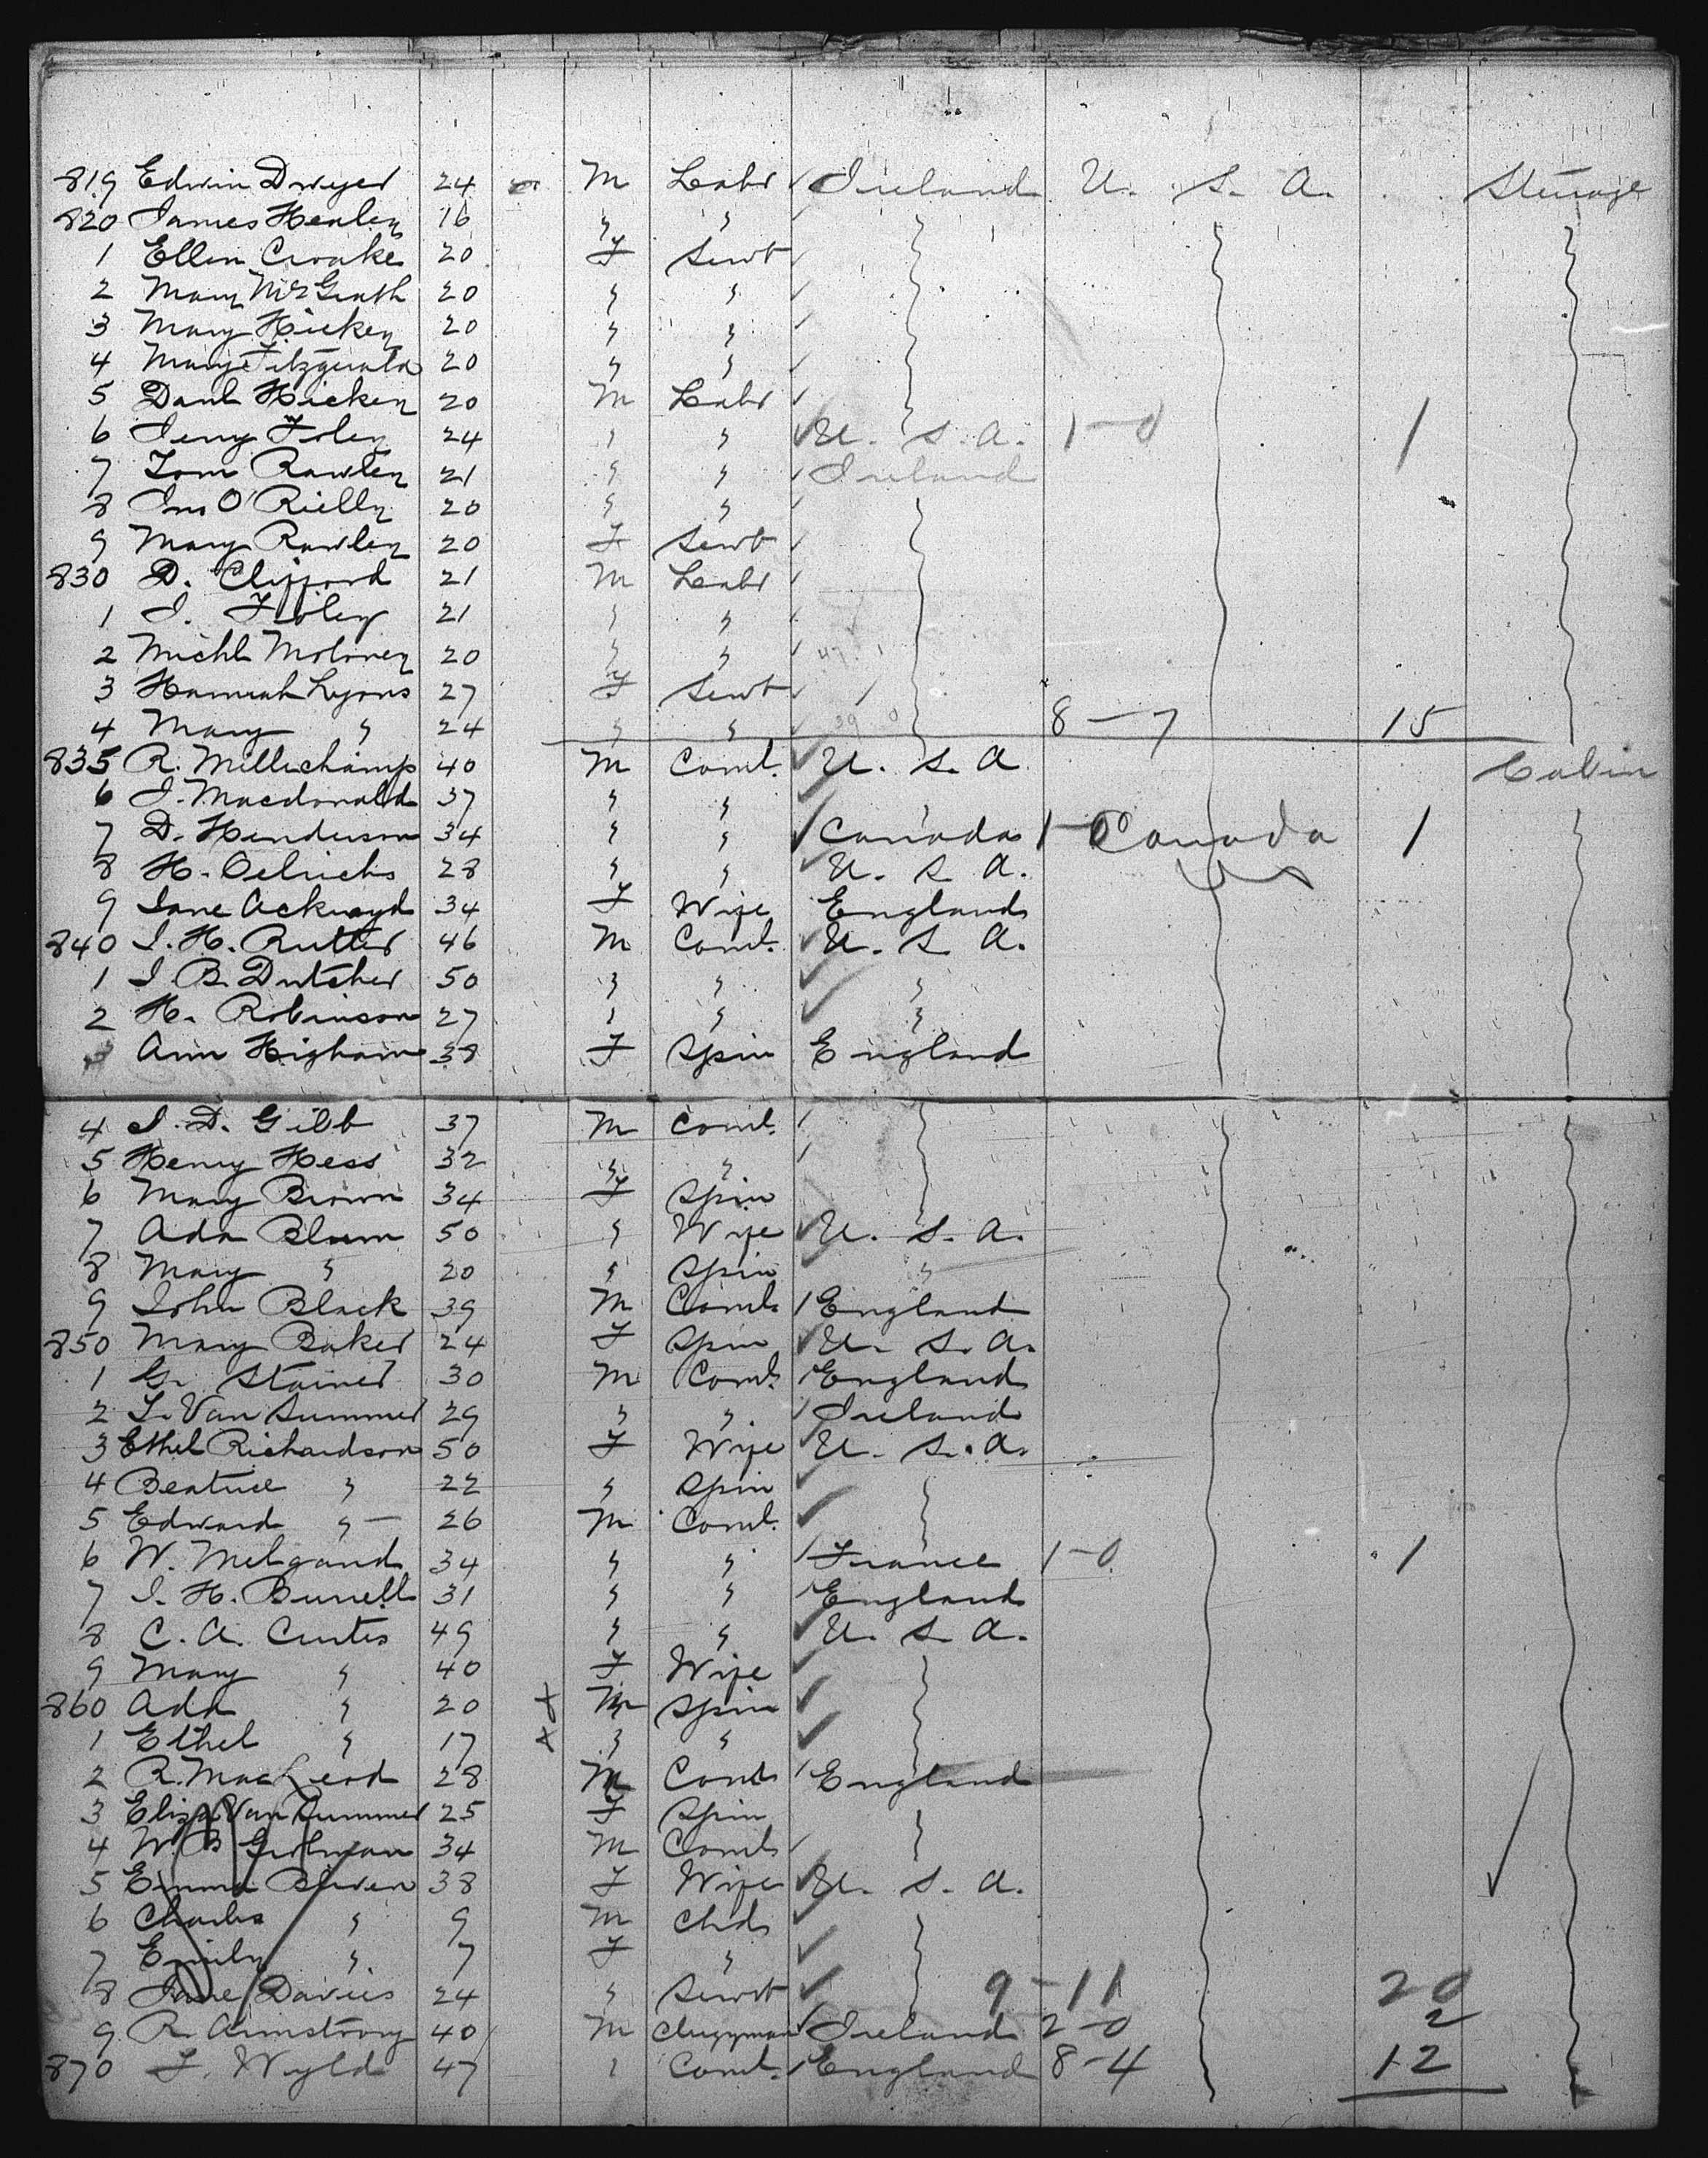 819 Edwin Dwyer 24 M Labr Ireland U. S. A. Steerage
820 James Healey 16 " "
1 Ellen Croake 20 F Servt
2 Mary McGrath 20 " "
3 Mary Hickey 20 " "
4 Mary Fitzgerald 20 " "
5 Danl Hickey 20 M Labr
6 Jerry Foley 24 " " U. S. A. 1-0 1
7 Tom Rawley 21 " " Ireland
8 Jno O'Rielly 20 " "
9 Mary Rawley 20 F Servt
830 D. Clifford 21 M Labr
1 J. Foley 21 " "
2 Michl Moloney 20 " "
3 Hannah Lyons 27 F Servt
4 Mary " 24 " " 8-7 15
835 R. Millichamp 40 M Coml. U. S. A Cabin
6 J. Macdonald 37 " " "
7 D. Henderson 34 " " Canada 1-0 Canada 1
8 H. Oelrichs 28 " " U. S. A.
9 Jane Ackroyd 34 F Wife England
840 J. H. Rutter 46 M Coml. U. S. A.
1 J B. Dutcher 50 " " "
2 H. Robinson 27 " " "
Ann Higham 38 F Spin England
4 J. D. Gibb 37 M Coml.
5 Henry Hess 32 " "
6 Mary Brown 34 F Spin
7 Ada Blum 50 " Wife U. S. A.
8 Mary " 20 " Spin "
9 John Black 39 M Coml. England
850 Mary Baker 24 F Spin U. S. A.
1 G. Stainer 30 M Coml. England
2 L. Van Summer 29 " " Ireland
3 Ethel Richardson 50 F Wife U. S. A.
4 Beatrice " 22 " Spin
5 Edward " 26 M Coml.
6 W. Melgand 34 " " France 1-0 1
7 J. H. Burrell 31 " " England
8 C. A. Curtis 49 " " U. S. A.
9 Mary " 40 F Wife
860 Ada " 20 x M Spin
1 Ethel " 17 x " "
2 R. MacLeod 28 M Coml England
3 Eliza Van Summer 25 F Spin
4 W. B 34 M Coml
5 Emma 38 F Wife U. S. A.
6 Charles " 9 M Chd
7 Emily " 7 F "
8 Jane Davies 24 " Servt 9-11 20
9 R. Armstrong 40 M Clergyman Ireland 2-0 2
870 F. Wyld 47 " Coml. England 8-4 12